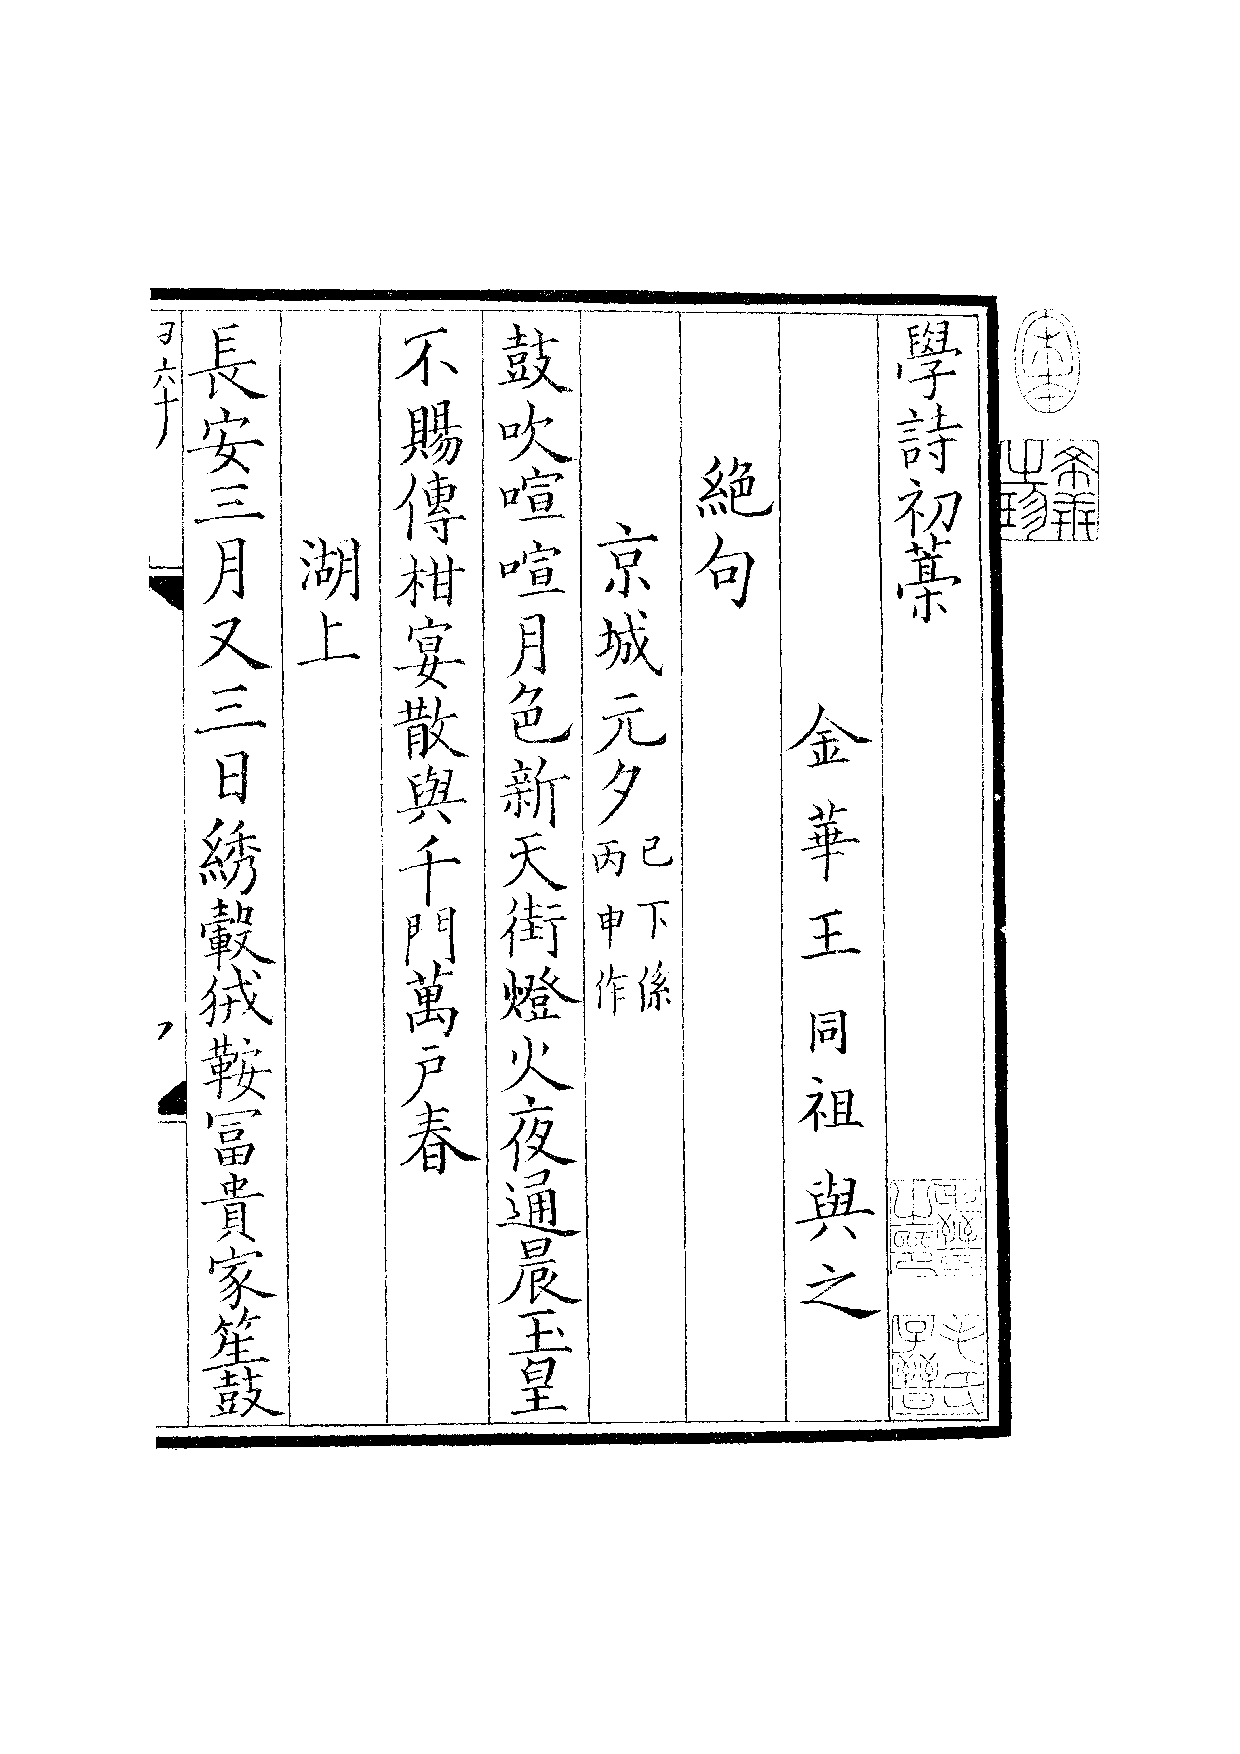 學詩初藁
金華王同祖與之
絕句
京城元夕已下係丙申作
鼓吹喧喧月色新天街燈火夜通晨玉皇
不賜傳柑宴散與千門萬戶春
湖上
長安三月又三日綉轂狨鞍富貴家笙鼓